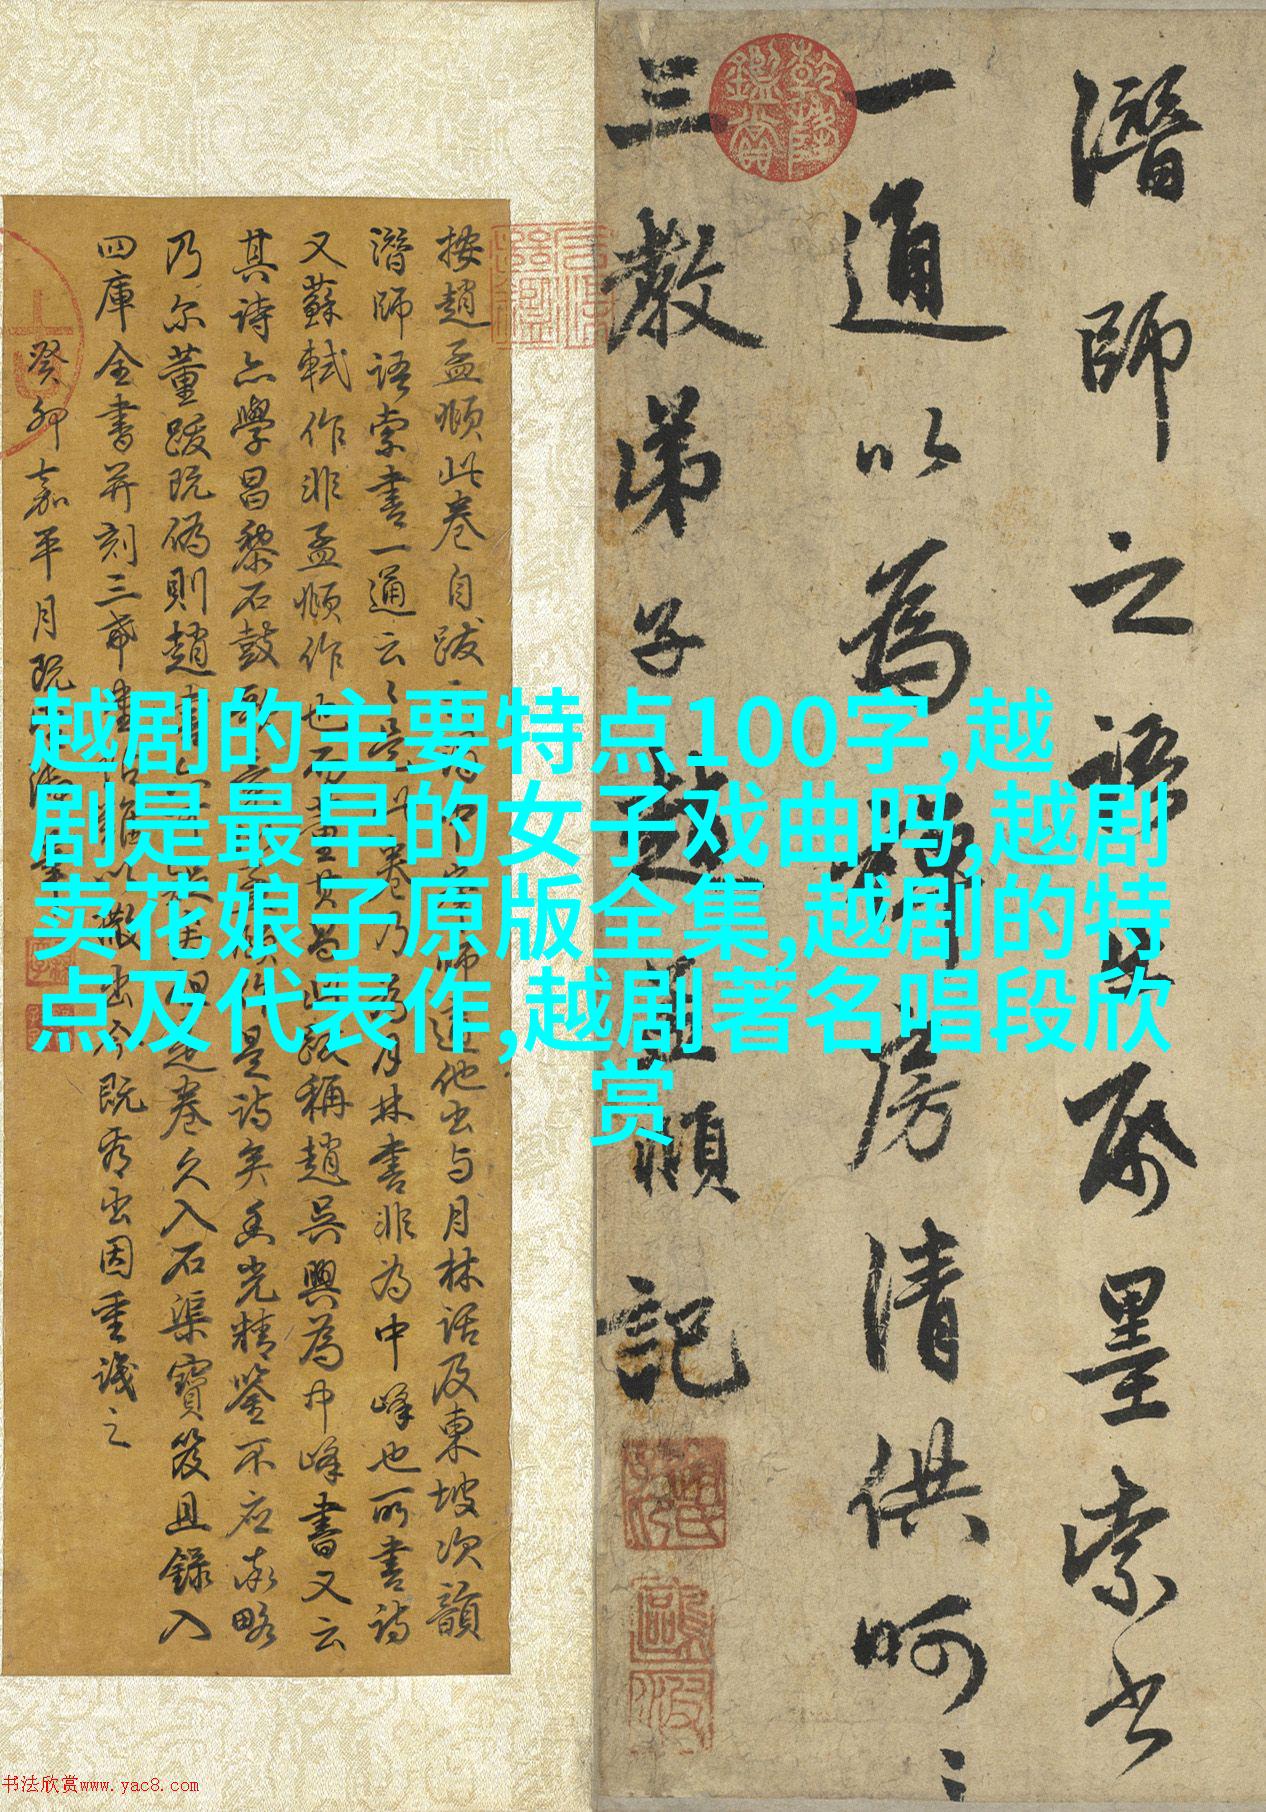 潛師之語墨索書
一通以為禪房清供呵呵
三教弟子趙孟頫記
乾隆鑑賞
按趙孟頫此卷自跋他出与月林話及東坡次韻
潛師語索書一通云云是此卷乃為月林書非為中峰也所書詩
又蘇軾作非孟頫作也而董其昌跋稱趙吳興為中峰書又云
其詩亦學昌黎石鼓歌作是詩矣光精鑒不應率略
乃尔董跋既偽則趙是卷久入石渠寶笈且錄入
四庫全書并刻三希難以撤出今既看出因重識之
癸卯嘉平月
越剧的主要特点100字,越
剧是最早的女子戏曲吗,越剧
卖花娘子原版全集,越剧的特
点及代表作,越剧著名唱段欣
赏
书法欣赏www.yac8.com